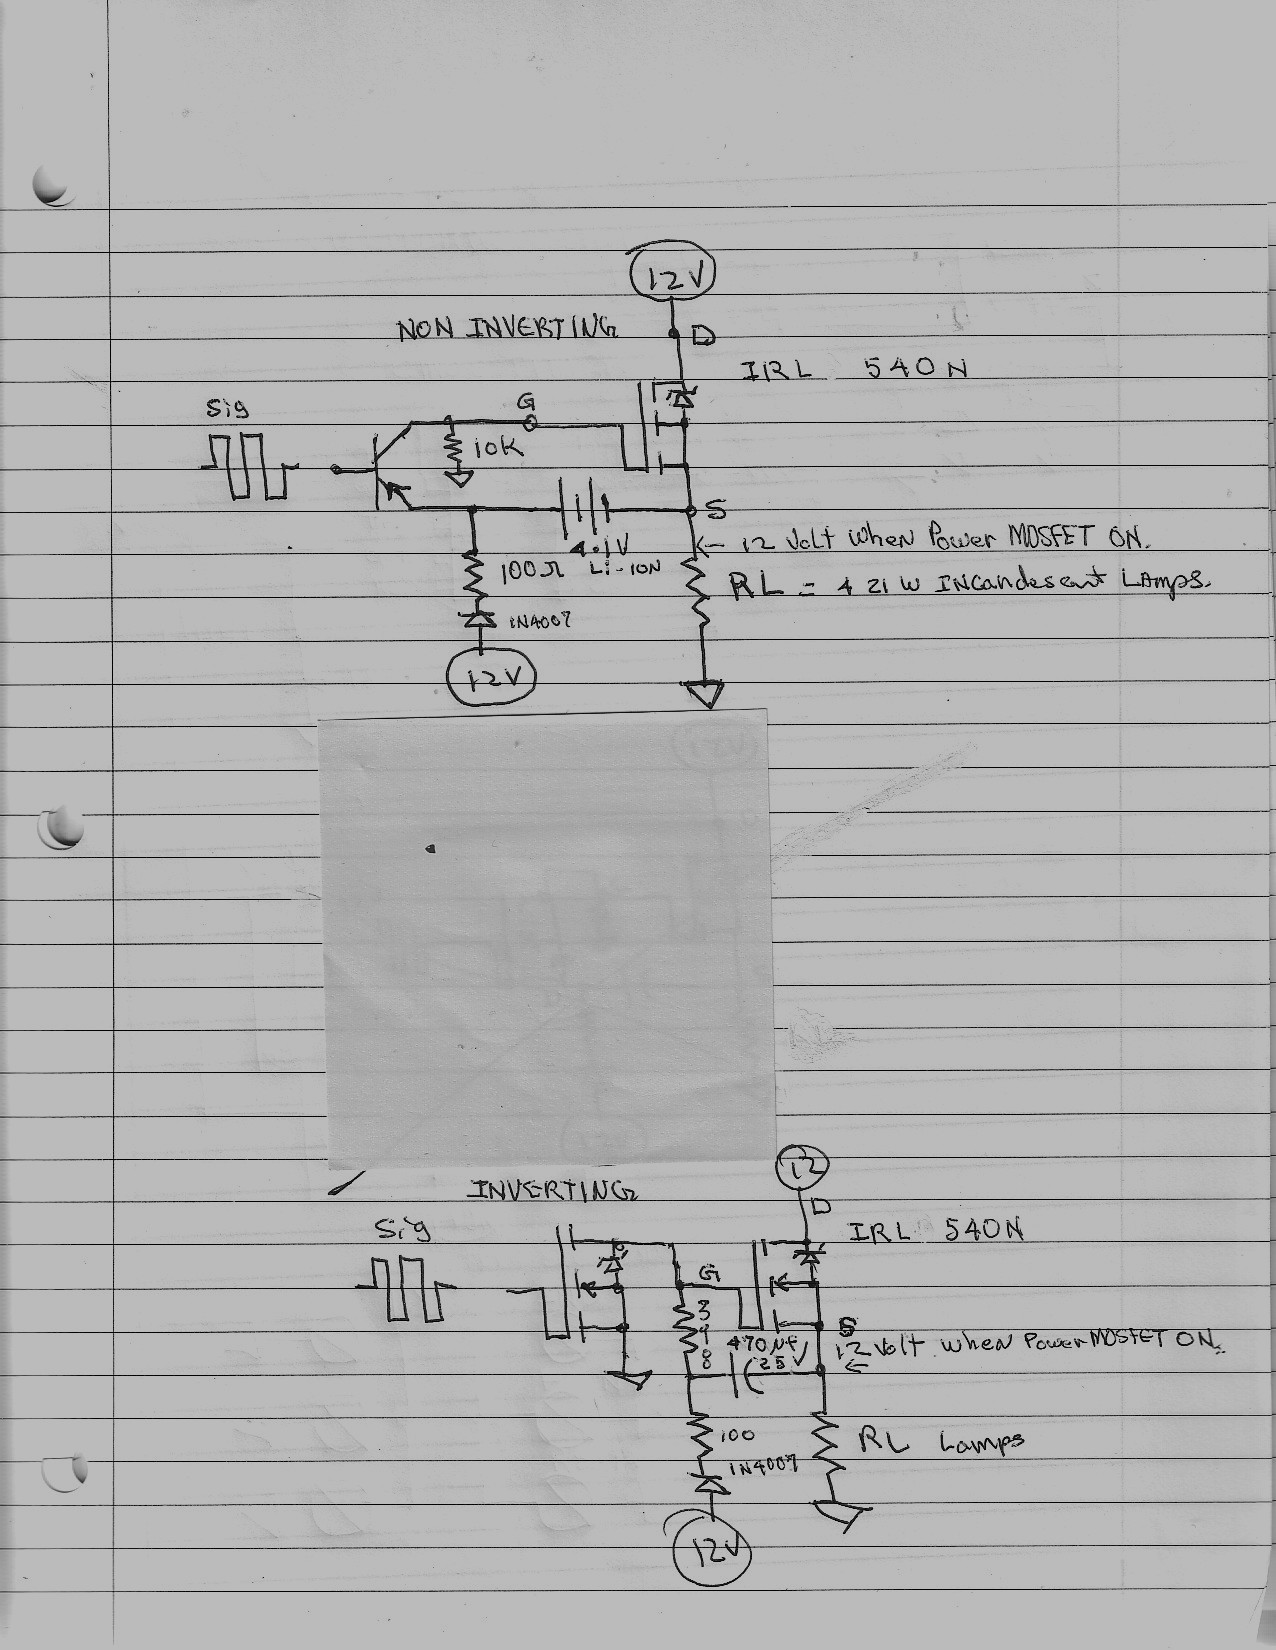 12V
NON INVERTING
D
IRL 540N
Sig
G
10K
S
← 12 Volt when Power MOSFET ON.
4.1V
100Ω Li-ION
RL = 4 21 W INCandescent LAmps.
1N4007
12V
12
INVERTING
D
Sig
IRL 540N
G
S
470µf
25V
12 Volt when Power MOSFET ON.
←
100
RL Lamps
1N4007
12V